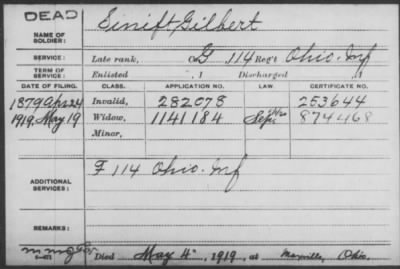 DEAD
Sinift Gilbert
NAME OF SOLDIER:
SERVICE: Late rank, Co G 114 Reg't Ohio Inf
TERM OF SERVICE: Enlisted , 1 Discharged , 1
DATE OF FILING. CLASS. APPLICATION NO. LAW CERTIFICATE NO.
1879 Apr 24 Invalid, 282078 253644
1919 May 19 Widow, 1141184 Sep. 874468
Minor,
ADDITIONAL SERVICES: F 114 Ohio Inf
REMARKS:
Died May 4, 1919, at Maxville, Ohio.